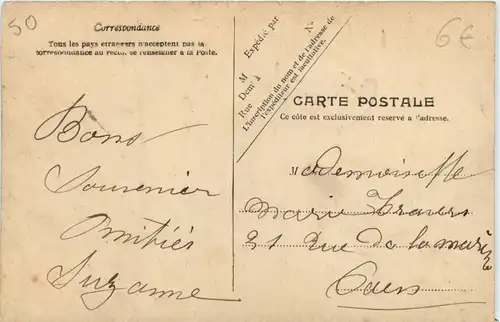 50
6€
Correspondance
Tous les pays etrangers n'acceptent pas la
correspondance au recto, se renseigner à la Poste.
Bons
Souvenier
Amitiés
Suzanne
Expédié par
M
Dem! à
Rue
N°
L'inscription du nom et de l'adresse de
l'expéditeur est facultative.
CARTE POSTALE
Ce côté est exclusivement reservé à l'adresse.
Mademoiselle
Marie
21 Rue De la
Caen